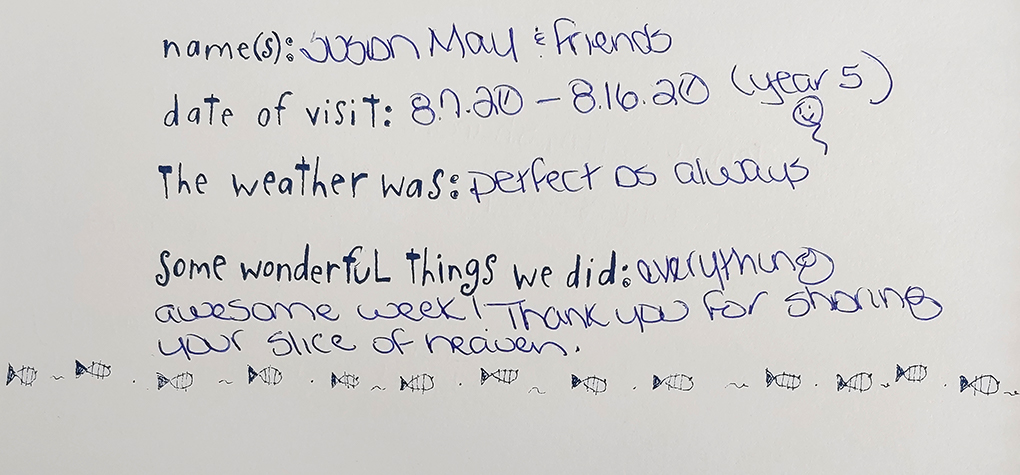 name(s): Susan May & friends
date of visit: 8.7.20 – 8.16.20 (year 5)
The weather was: perfect as always
some wonderful things we did: everything
awesome week! Thank you for sharing
your slice of heaven.